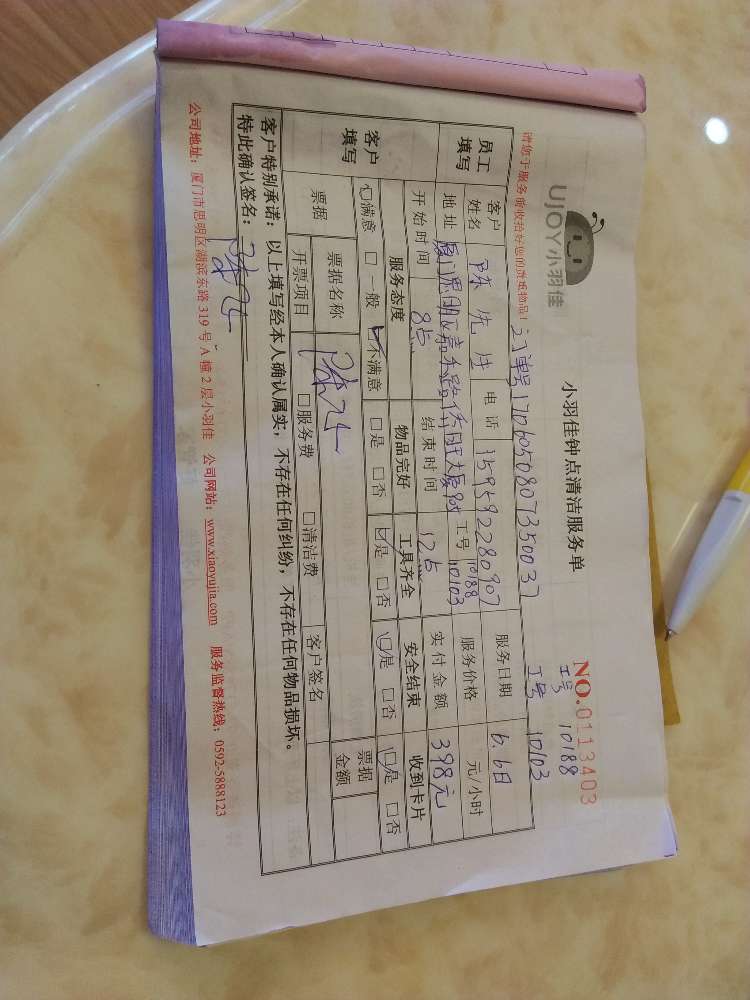 UJOY小羽佳
小羽佳钟点清洁服务单
NO.0113403
工号 10188
请您于服务前收拾好您的贵重物品!
订单号170605080735003
工号 10103
员工填写
客户姓名 陈先生 电话 15959228090 服务日期 6.6日
地址 厦门思明区嘉禾路 工号 10188 10103 服务价格 元/小时
开始时间 8点 结束时间 12点 实付金额 398元
客户填写
服务态度 物品完好 工具齐全 安全结束 收到卡片
☑满意 □一般 □不满意 □是 □否 ☑是 □否 ☑是 □否 ☑是 □否
票据 票据名称 客户签名 票据金额
开票项目 □服务费 □清洁费
客户特别承诺:以上填写经本人确认属实,不存在任何纠纷,不存在任何物品损坏。
特此确认签名:
公司地址:厦门市思明区湖滨东路319号A幢2层小羽佳 公司网站:www.xiaoyujia.com 服务监督热线:0592-5888123